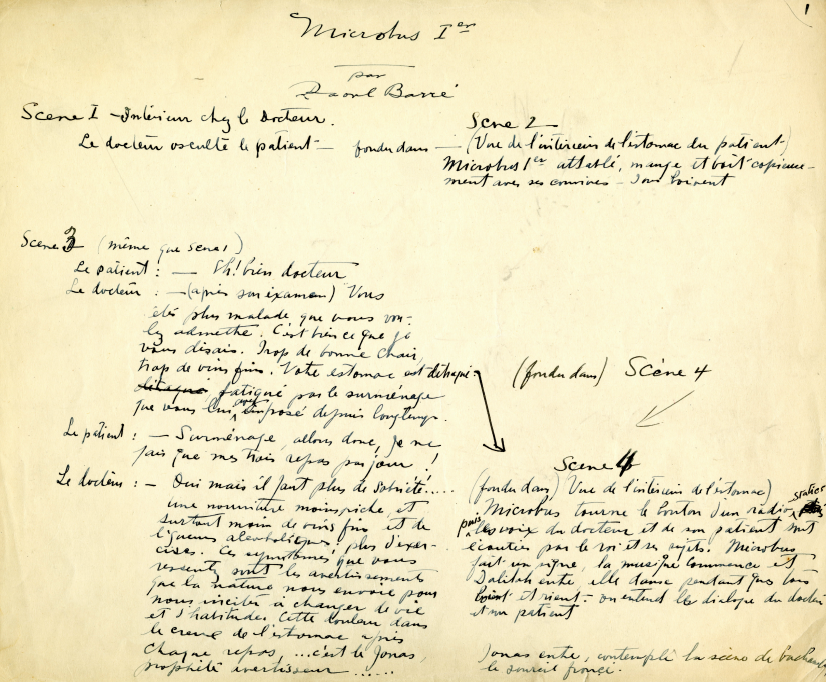 1
Microbus Ier
par
Raoul Barré
Scene I - Intérieur chez le Docteur.
Le docteur osculte le patient - fondu dans -
Scne 2 -
(Vue de l'intérieur de l'estomac du patient)
Microbus 1er attablé, mange et boit copieuse-
ment avec ses convives - Tous boivent
Scene 3 (même que scene 1)
Le patient : - Eh! bien docteur
Le docteur : - (après son examen) Vous
êtes plus malade que vous vou-
lez admettre. C'est bien ce que je
vous disais. Trop de bonne chair,
trop de vins fins. Votre estomac est
fatigué par le surménage
que vous lui avez imposé depuis longtemps.
Le patient : - Surménage, allons donc, je ne
fais que mes trois repas par jour!
Le docteur : - Oui mais il faut plus de sobriété.....
une nourriture moins riche, et
surtout moin de vins fins et de
liqueurs alcooliques; plus d'exer-
cises. Ces symptomes que vous
ressentez sont les avertissements
que la nature nous envoie pour
nous inciter à changer de vie
et d'habitudes. Cette douleur dans
le creux de l'estomac après
chaque repas, ... c'est le Jonas,
prophète avertisseur ......
(fondu dans) Scène 4
Scene 4
(fondu dans) Vue de l'intérieur de l'estomac)
Microbus tourne le bouton d'un radio, static
puis les voix du docteur et de son patient sont
écoutées par le roi et ses sujets. Microbus
fait un signe, la musique commence et
Dalilah entre elle danse pendant que tous
boivent et rient - on entend le dialogue du docteur
et son patient
Jonas entre, contemple la scène de
le sourcil froncé.